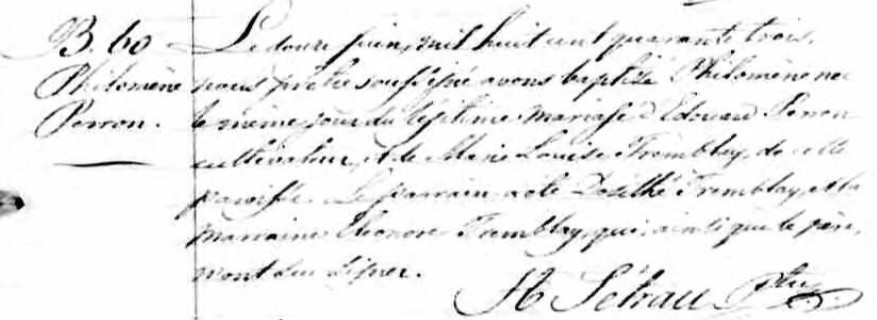 B. 60
Philomène
Perron.
Le douze juin, mil huit cent quarante trois,
nous prêtre soussigné avons baptisé Philomène née
le même jour du légitime mariage d'Edouard Perron
cultivateur, et de Marie Louise Tremblay, de cette
paroisse. Le parrain a été Dosithé Tremblay, et la
marraine Eleonore Tremblay, qui, ainsi que le père,
n'ont su signer.
A Ptre